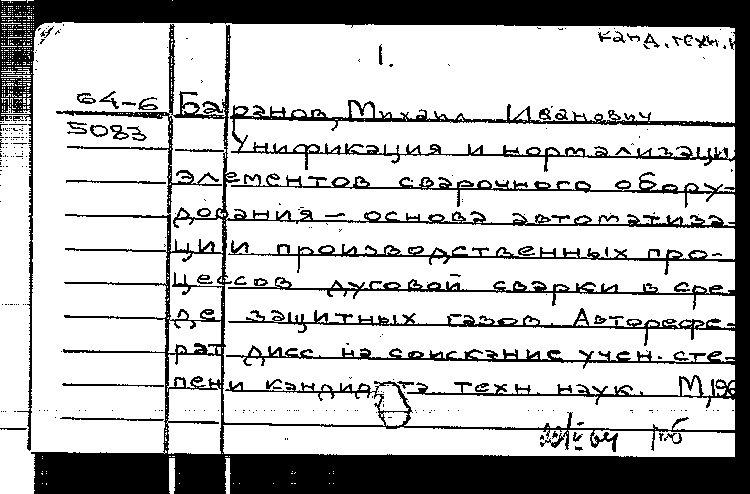 канд. техн. н
1.
64-6 Баранов, Михаил Иванович
5083
Унификация и нормализаци
элементов сварочного обору-
дования — основа автоматиза-
ции производственных про-
цессов дуговой сварки в сре-
де защитных газов. Авторефе-
рат дисс. на соискание учен. сте-
пени кандидата техн. наук. М, 196